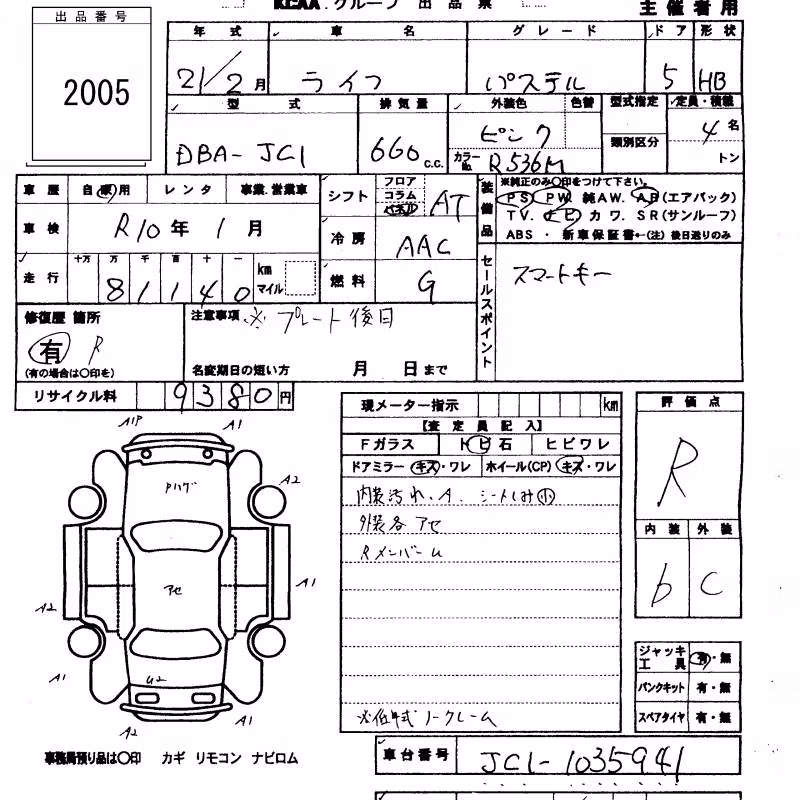 KCAA グループ 出品票
主催者用
出品番号
2005
年式 車名 グレード ドア 形状
21/2月 ライフ パステル 5 HB
型式 排気量 外装色 色替 型式指定 定員・積載
DBA-JC1 660 c.c. ピンク 類別区分 4名
カラーNo. R536M トン
車歴 自家用 レンタ 事業.営業車
車検 R10年 1月
走行 十万 万 千 百 十 一 km マイル
81140
シフト フロア コラム パネル AT
冷房 AAC
燃料 G
装備品 ※純正のみ〇印をつけて下さい。
PS PW. 純AW. AB(エアバック)
TV. ナビ カワ. SR(サンルーフ)
ABS ・ 新車保証書←(注) 後日送りのみ
セールスポイント スマートキー
修復歴 箇所
有 R
(有の場合は〇印を)
注意事項 ※ プレート後日
名変期日の短い方 月 日まで
リサイクル料 9380円
現メーター指示 km
【査定員記入】
Fガラス トビ石 ヒビワレ
ドアミラー キズ・ワレ ホイール(CP) キズ・ワレ
内装汚れ.A. シートしみ小
外装各アセ
Rメンバーム
※低年式ノークレーム
評価点
R
内装 外装
b C
ジャッキ工具 有・無
パンクキット 有・無
スペアタイヤ 有・無
A1P A1
Pハゲ
A2
アセ
A1
A2
A1
U2
A1
A2
事務局預り品は〇印 カギ リモコン ナビロム
車台番号 JC1-1035941